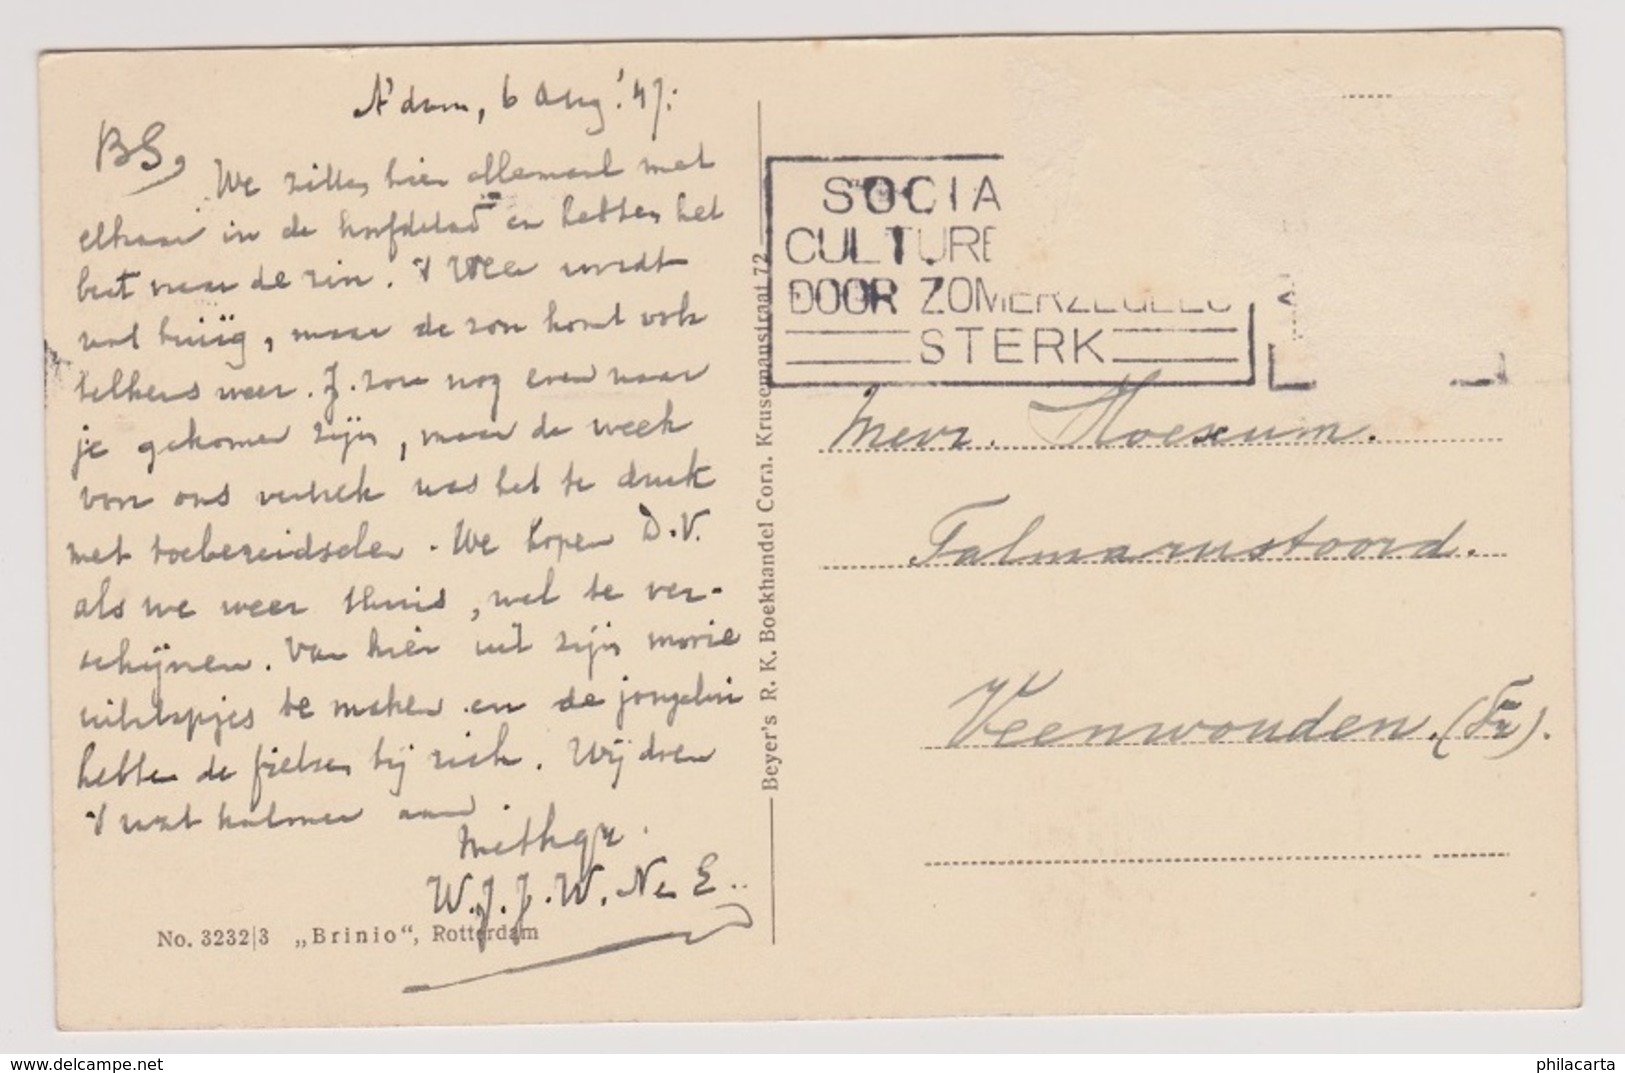 A'dam, 6 Aug. '47.
BS,
We zitten hier allemaal met
elkaar in de hoofdstad en hebben het
best naar de zin. 't Weer wordt
wat buiig, maar de zon komt ook
telkens weer. J. zou nog even naar
je gekomen zijn, maar de week
van ons vertrek was het te druk
met toebereidselen. We hopen D.V.
als we weer thuis, wel te ver-
schijnen. Van hier uit zijn mooie
uitstapjes te maken en de jongelui
hebben de fietsen bij zich. Wij doen
't wat kalmer aan.
W.J.J.W. N en E..
No. 3232|3 „Brinio“, Rotterdam
Beyer's R. K. Boekhandel Corn. Krusemanstraat 72
SOCIA
CULTURE
DOOR ZOMERZEGELS
STERK
Mevr. Hoexum.
Talmarustoord.
Veenwouden. (Fr).
delcampe.net
philacarta